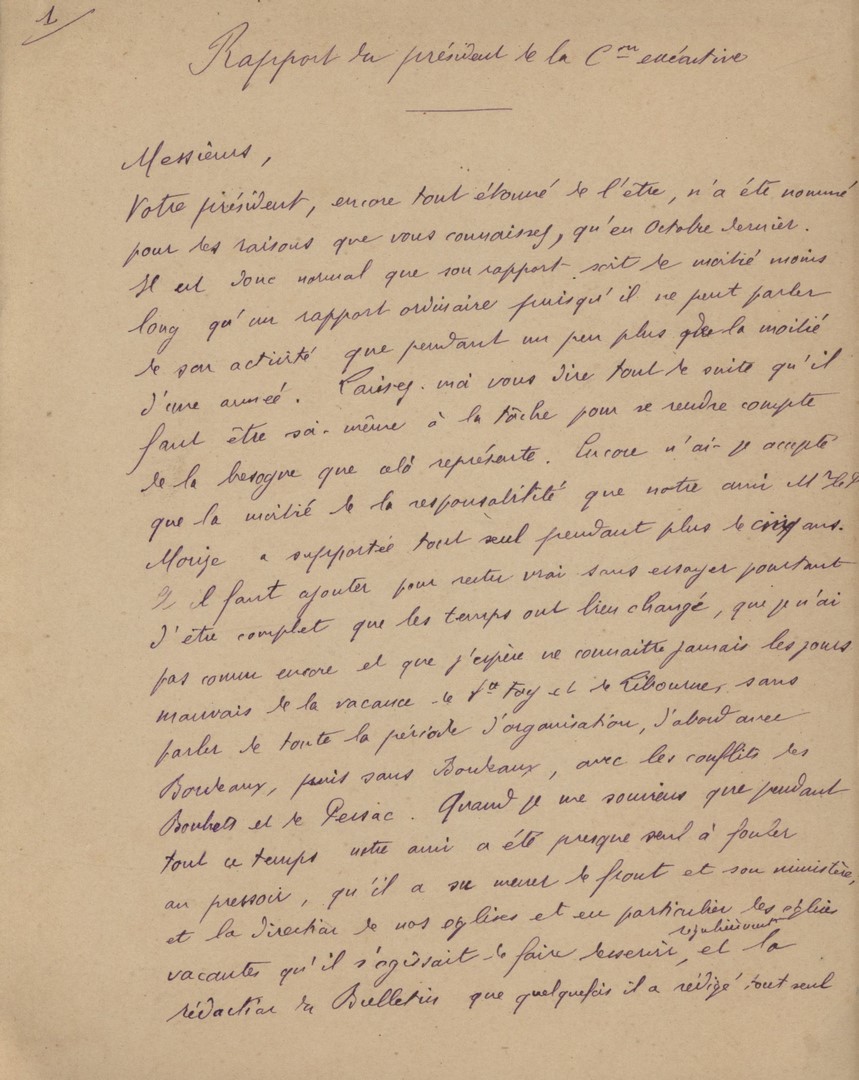 1
Rapport du président de la Con exécutive
Messieurs,
Votre président, encore tout étonné de l'être, n'a été nommé
pour les raisons que vous connaissez, qu'en Octobre dernier.
Il est donc normal que son rapport soit de moitié moins
long qu'un rapport ordinaire puisqu'il ne peut parler
de son activité que pendant un peu plus de la moitié
d'une année. Laissez-moi vous dire tout de suite qu'il
faut être soi-même à la tâche pour se rendre compte
de la besogne que cela représente. Encore n'ai-je accepté
que la moitié de la responsabilité que notre ami Mr
Morize a supportée tout seul pendant plus de cinq ans.
Il faut ajouter pour rester vrai sans essayer pourtant
d'être complet que les temps ont bien changé, que je n'ai
pas connu encore et que j'espère ne connaitre jamais les jours
mauvais de la vacance de Ste Foy et de Libourne, sans
parler de toute la période d'organisation, d'abord avec
Bordeaux, puis sans Bordeaux, avec les conflits des
Bouhets et de Pessac. Quand je me souviens que pendant
tout ce temps notre ami a été presque seul à fouler
au pressoir, qu'il a su mener de front et son ministère,
et la direction de nos églises et en particulier des églises
vacantes qu'il s'agissait de faire desservir régulièrement, et la
rédaction du Bulletin que quelquefois il a rédigé tout seul